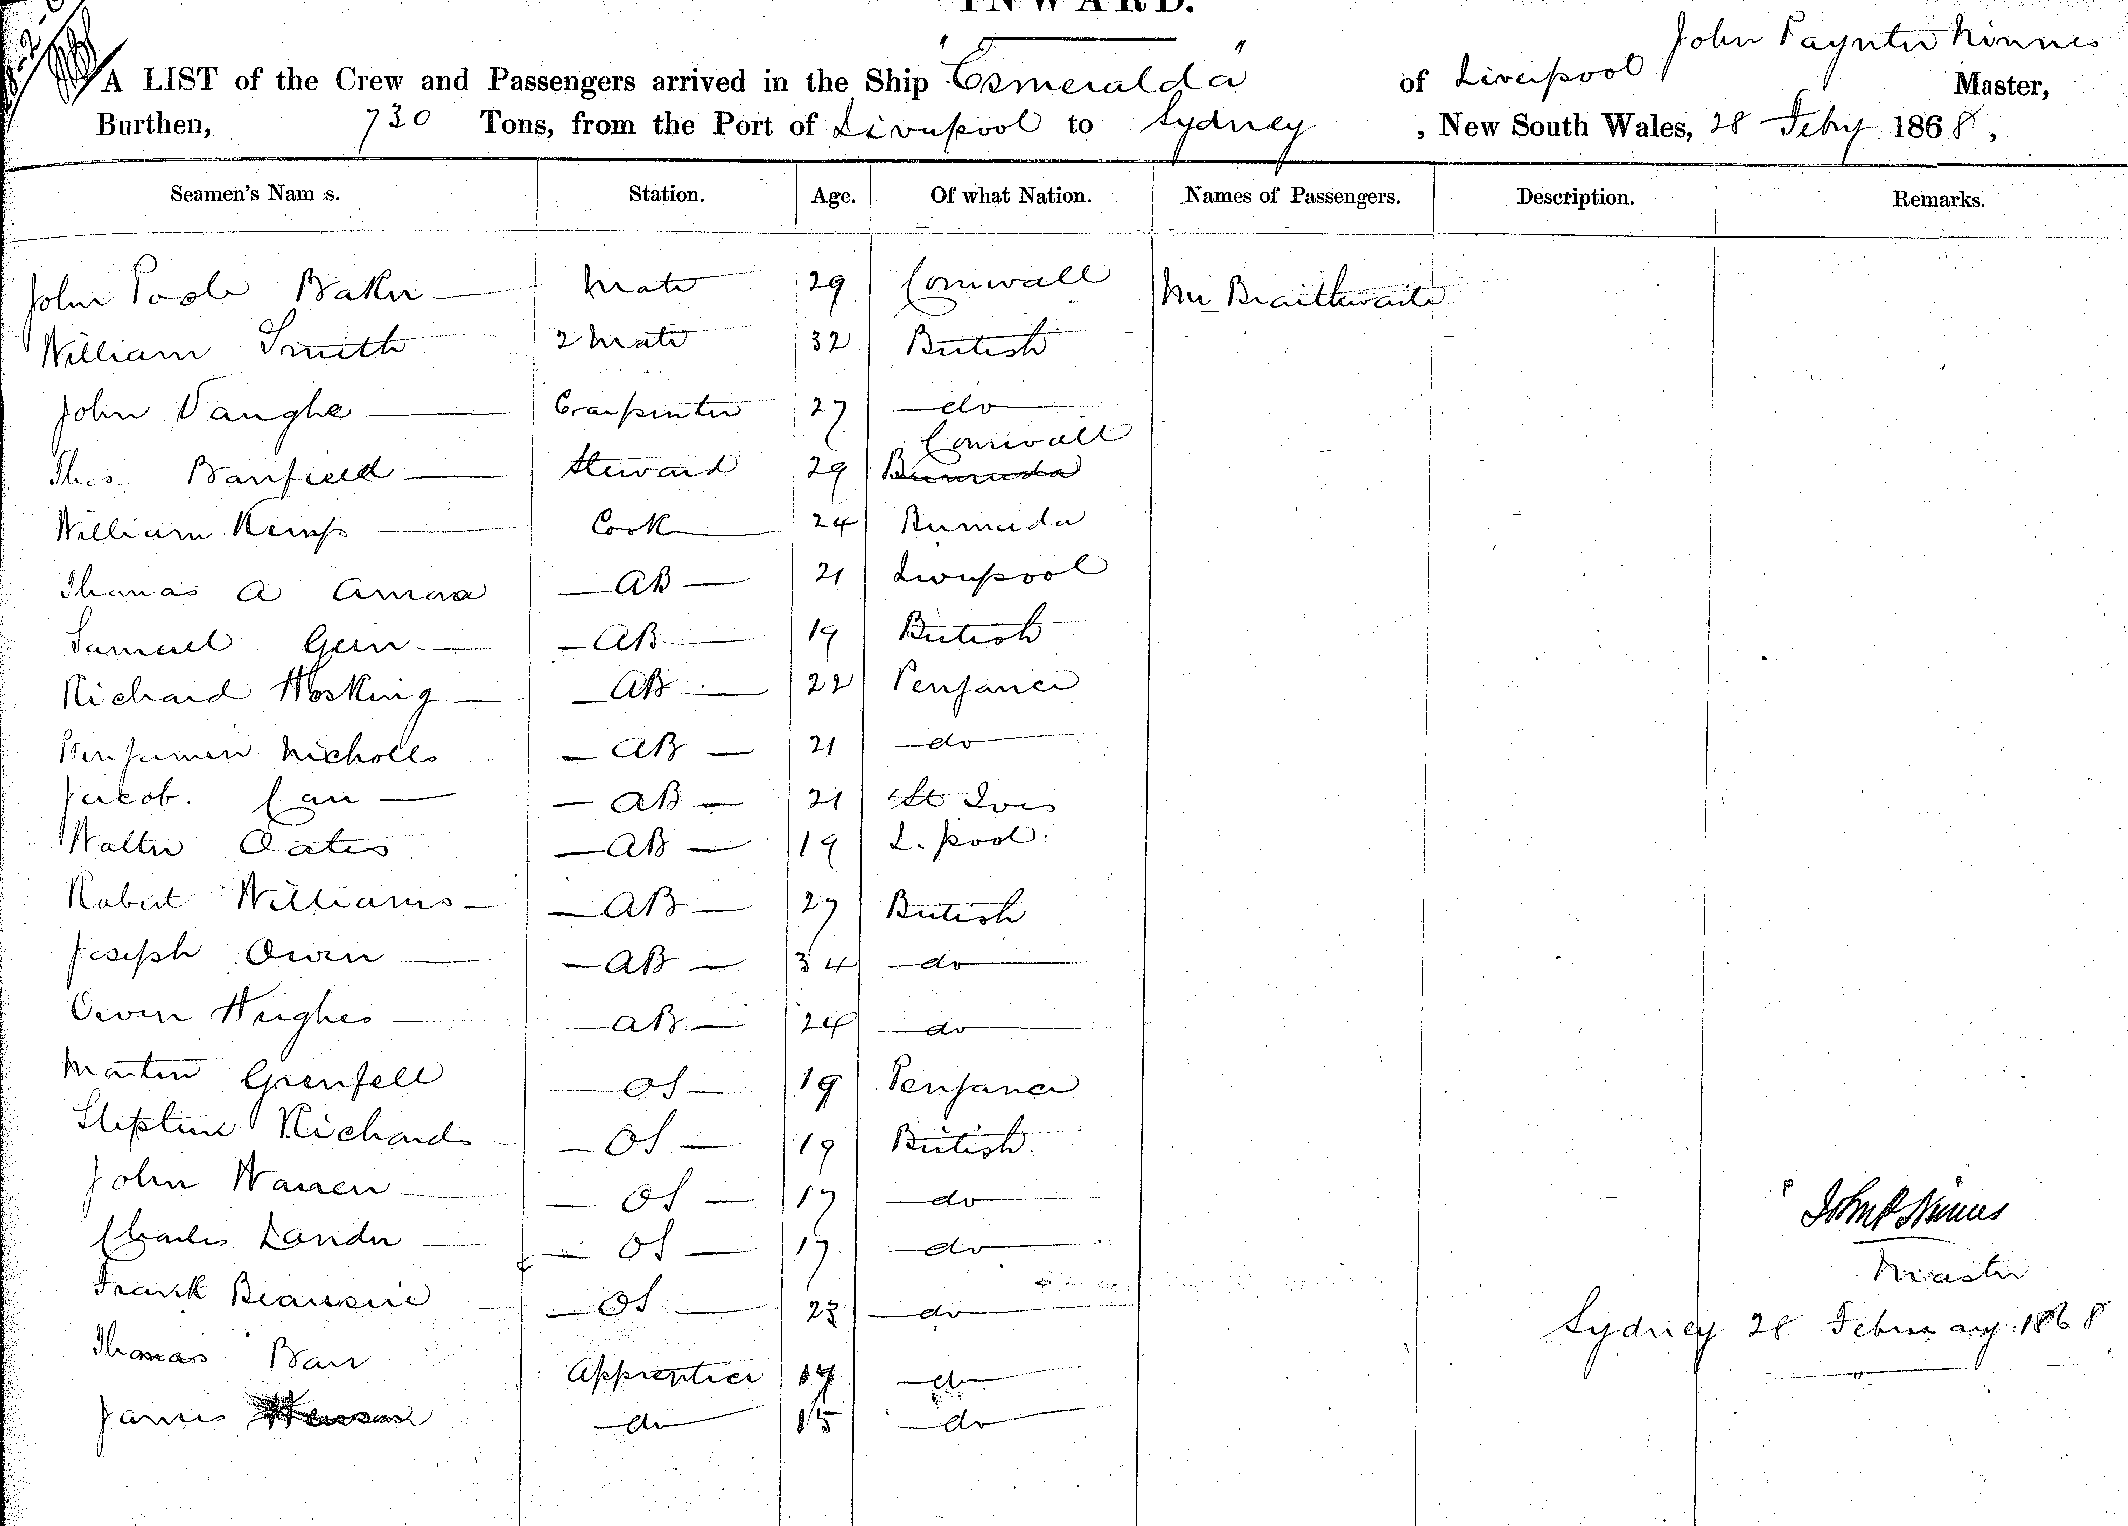 INWARD.
A LIST of the Crew and Passengers arrived in the Ship "Esmeralda" of Liverpool John Paynter Ninnes Master,
Burthen, 730 Tons, from the Port of Liverpool to Sydney, New South Wales, 28 Feby 1868,
Seamen's Nam s. Station. Age. Of what Nation. Names of Passengers. Description. Remarks.
John Poole Baker Mate 29 Cornwall Mr Braithwaite
William Smith 2 Mate 32 British
John Vaughe Carpenter 27 do
Thos Banfield Steward 29 Cornwall Bermuda
William Kemp Cook 24 Bumuda
Thomas A AB 21 Liverpool
Samuel AB 19 British
Richard Hosking AB 22 Penzance
Benjamen Nicholls AB 21 do
Jacob. Carr AB 21 St Ives
Walter Oates AB 19 L. pool.
Robert Williams AB 27 British
Joseph Owen AB 34 do
Owen Hughes AB 24 do
Martin Grenfell OS 19 Penzance
Stephen Richards OS 19 British
John Warren OS 17 do
Charles Lander OS 17 do
Frank OS 23 do
Thomas Barr Apprentice 17 do
James do 15 do
John P Ninnes
Master
Sydney 28 February 1868